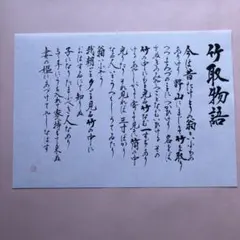 竹取物語
今は昔たけとりの翁といふもの
野山にまじりて竹を取り
つつよろづのことにつかひけり名をば
さぬきのみやつことなむいひける
竹の中にもと光る竹なむ一すぢあり
寄りて見るに筒の中
光りたりそれを見れば三寸ばかり
なる人いとうつくしうてゐたり
翁いふやう
我朝ごと夕ごとに見る竹の中に
おはするにて知りぬ
子になりたまふべき人なめり
とて手にうち入れて家へ持ちて来ぬ
妻の嫗にあづけてやしなはす